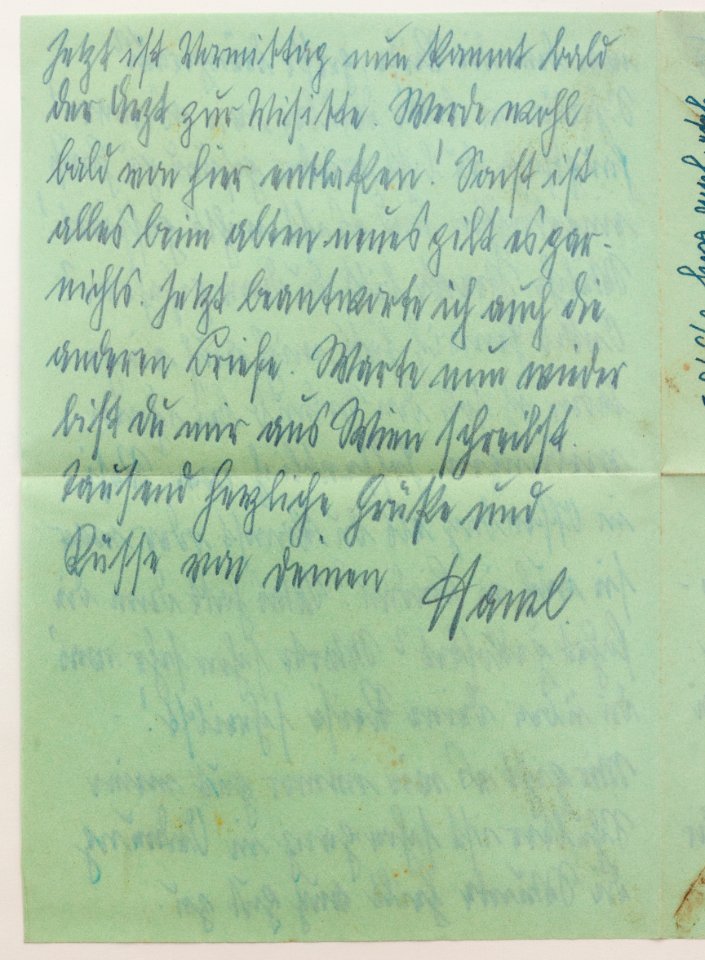 Jetzt ist Vormittag nun kommt bald
der Arzt zur Visitte. Werde wohl
bald von hier entlaßen! Sonst ist
alles beim alten neues gibt es gar-
nichts. Jetzt beantworte ich auch die
anderen Briefe. Warte nun wieder
bist du mir aus Wien schreibst.
Tausend herzliche Grüße und
Küsse von deinen